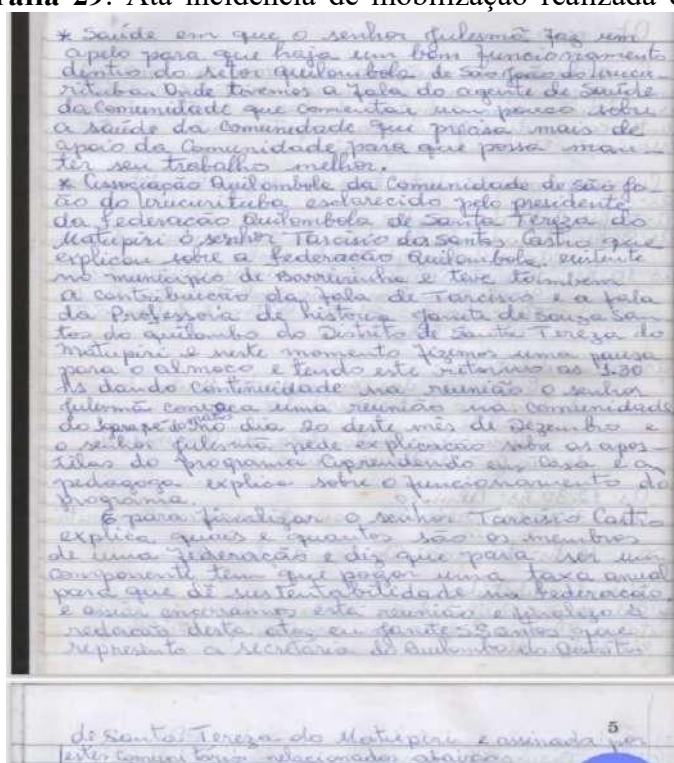 29: Ata incidência de mobilização realizada
* Saúde em que o senhor Julesmã faz um
apelo para que haja um bom funcionamento
dentro do setor quilombola de São João do Urucu-
rituba. Onde tivemos a fala do agente de Saúde
da Comunidade que comentar um pouco sobre
a saúde da Comunidade que precisa mais de
apoio da Comunidade para que possa man-
ter seu trabalho melhor.
* Associação Quilombola da Comunidade de São Jo-
ão do Urucurituba esclarecido pelo presidente
da federação Quilombola de Santa Tereza do
Matupiri o senhor Tarcisio dos Santos Castro que
explicou sobre a federação Quilombola existente
no município de Barreirinha e teve também
a contribuição da fala de Tarcisio e a fala
da Professora de história Janete de Souza San-
tos do quilombo do Distrito de Santa Tereza do
Matupiri e neste momento fizemos uma pausa
para o almoço e tendo este retorno as 1:30
hs dando continuidade na reunião o senhor
Julesmã convoca uma reunião na comunidade
do dia 20 deste mês de Dezembro e
o senhor Julesmã pede explicação sobre as apos-
tilas do programa Aprendendo em Casa e a
pedagoga explica sobre o funcionamento do
programa.
E para finalizar o senhor Tarcisio Castro
explica quais e quantos são os membros
de uma federação e diz que para ser um
componente tem que pagar uma taxa anual
para que dê sustentabilidade na federação
e assim encerramos esta reunião e finalizo a
redação desta ata, eu Janete S Santos que
represento a secretaria do Quilombo do Distrito
5
de Santa Tereza do Matupiri e assinada por
estes comunitários relacionados abaixo